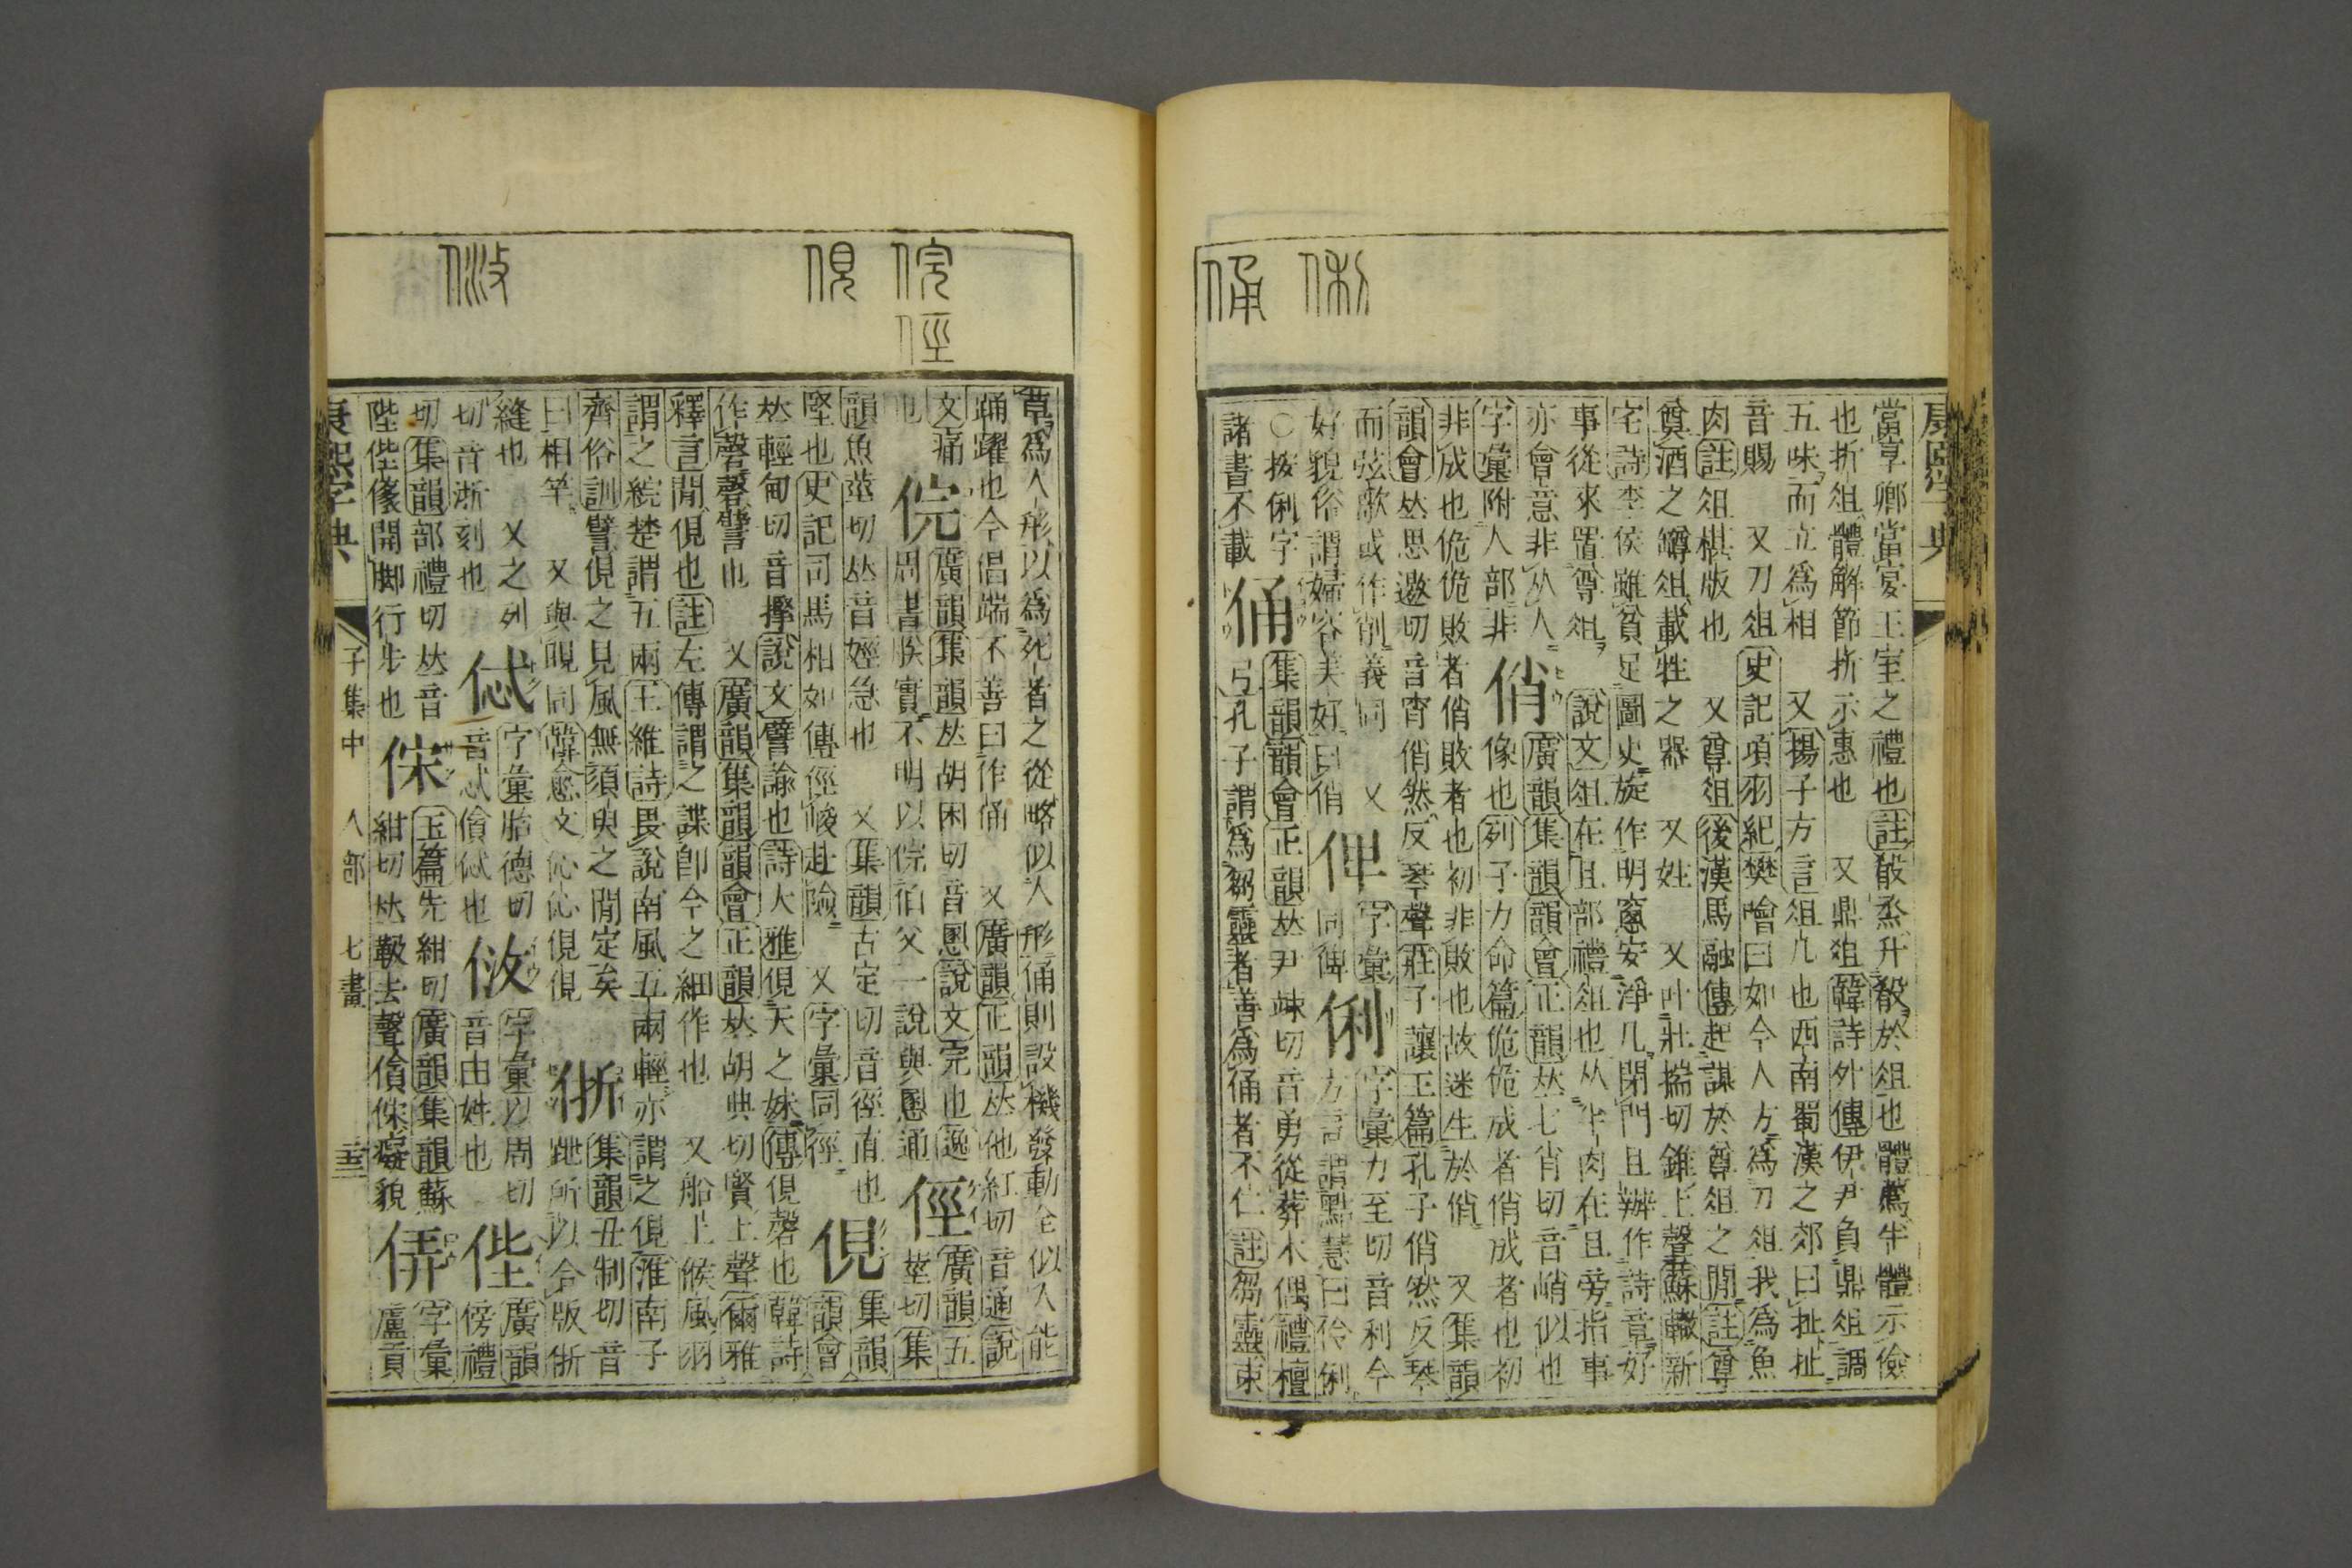 康熙字典
當享卿當宴王室之禮也註殽烝升殽於俎也體薦半體示儉
也折俎體解節折示惠也 又鼎俎韓詩外傳伊尹負鼎俎調
五味而立爲相 又揚子方言俎几也西南蜀漢之郊曰抯抯
音賜 又刀俎史記項羽紀樊噲曰如今人方爲刀俎我爲魚
肉註俎椹版也 又尊俎後漢馬融傳起謀於尊俎之閒註尊
奠酒之罇俎載牲之器 又姓 又叶壯揣切錐上聲蘇轍新
宅詩李侯雖貧足圖史旋作明窻安淨几閉門且辦作詩章好
事從來置尊俎 說文俎在且部禮俎也从半肉在且旁指事
亦會意非从人
字彙附人部非
俏 廣韻集韻韻會正韻𠀤七肖切音峭似也
像也列子力命篇佹佹成者俏成者也初
非成也佹佹敗者俏敗者也初非敗也故迷生於俏 又集韻
韻會𠀤思邀切音宵俏然反琴聲莊子讓王篇孔子俏然反琴
而弦歌或作削義同 又
好貌俗謂婦容美好曰俏
俾 字彙
同俾
俐 字彙力至切音利今
方言謂黠慧曰伶俐
○按俐字
諸書不載
俑 集韻韻會正韻𠀤尹竦切音勇從葬木偶禮檀
弓孔子謂爲芻靈者善爲俑者不仁註芻靈束
俐
俑
草爲人形以爲死者之從略似人形俑則設機發動全似人能
踊躍也今倡端不善曰作俑 又廣韻正韻𠀤他紅切音通說
文痛
也
俒 廣韻集韻𠀤胡困切音慁說文完也逸
周書朕實不明以俒伯父一說與慁通
俓 廣韻五
莖切集
韻魚莖切𠀤音娙急也 又集韻古定切音徑直也
堅也史記司馬相如傳俓峻赴險 又字彙同徑
俔 集韻
韻會
𠀤輕甸切音 說文譬諭也詩大雅俔天之妹傳俔磬也韓詩
作磬磬譬也 又廣韻集韻韻會正韻𠀤胡典切賢上聲爾雅
釋言閒俔也註左傳謂之諜卽今之細作也 又船上候風羽
謂之綄楚謂五兩王維詩畏說南風五兩輕亦謂之俔淮南子
齊俗訓譬俔之見風無須臾之閒定矣
曰相竿 又與睍同韓愈文伈伈俔俔
集韻丑制切音
跇所以合版
縫也 又之列
切音浙刻也
字彙惕德切
音忒
字彙以周切
音由姓也
廣韻
傍禮
切集韻部禮切𠀤音
陛 開脚行步也
俕 玉篇先紺切廣韻集韻蘇
紺切𠀤 去聲儑俕癡貌
字彙
盧貢
俒
俓
俔
康熙字典 子集中 人部 七畫